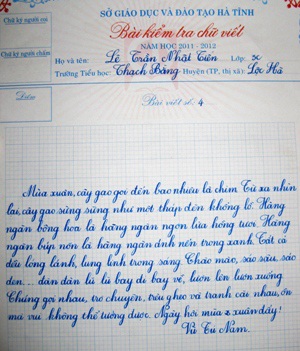 SỞ GIÁO DỤC VÀ ĐÀO TẠO HÀ TĨNH
Chữ ký người coi
Bài kiểm tra chữ viết
NĂM HỌC 2011 - 2012
Chữ ký người chấm
Họ và tên: Lê Trần Nhật Tiên Lớp:
Trường Tiểu học: Thạch Bằng Huyện (TP, thị xã): Lộc Hà
Điểm
Bài viết số: 4
Mùa xuân, cây gạo gọi đến bao nhiêu là chim. Từ xa nhìn
lại, cây gạo sừng sững như một tháp đèn khổng lồ. Hàng
ngàn bông hoa là hàng ngàn ngọn lửa hồng tươi. Hàng
ngàn búp nõn là hàng ngàn ánh nến trong xanh. Tất cả
đều lóng lánh, lung linh trong nắng. Chào mào, sáo sậu, sáo
đen,... đàn đàn lũ lũ bay đi bay về, lượn lên lượn xuống.
Chúng gọi nhau, trò chuyện, trêu ghẹo và tranh cãi nhau, ồn
mà vui không thể tưởng được. Ngày hội mùa xuân đấy!
Vũ Tú Nam.